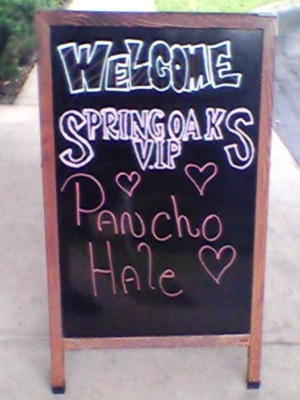 WELCOME
SPRING OAKS
V.I.P
Pancho
Hale